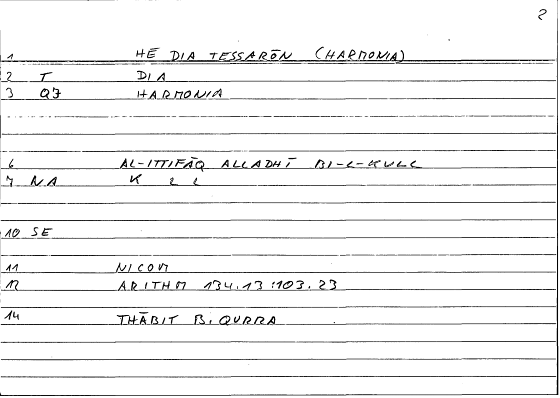 2
1 HĒ DIA TESSARŌN (HARMONIA)
2 T DIA
3 QJ HARMONIA
6 AL-ITTIFĀQ ALLADHĪ BI-L-KULL
7 NA K L L
10 SE
11 NICOM
12 ARITHM 134.13:103.23
14 THĀBIT B. QURRA